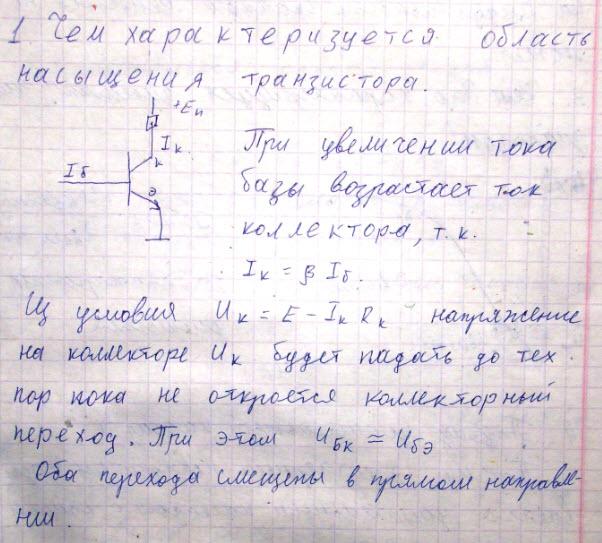 1 Чем характеризуется область
насыщения транзистора.
+Eп
Iк
к
Iб
э
При увеличении тока
базы возрастает ток
коллектора, т.к.
Iк = β Iб.
Из условия Uк = E - Iк Rк напряжение
на коллекторе Uк будет падать до тех
пор пока не откроется коллекторный
переход. При этом Uбк ≃ Uбэ
Оба перехода смещены в прямом направле-
нии.